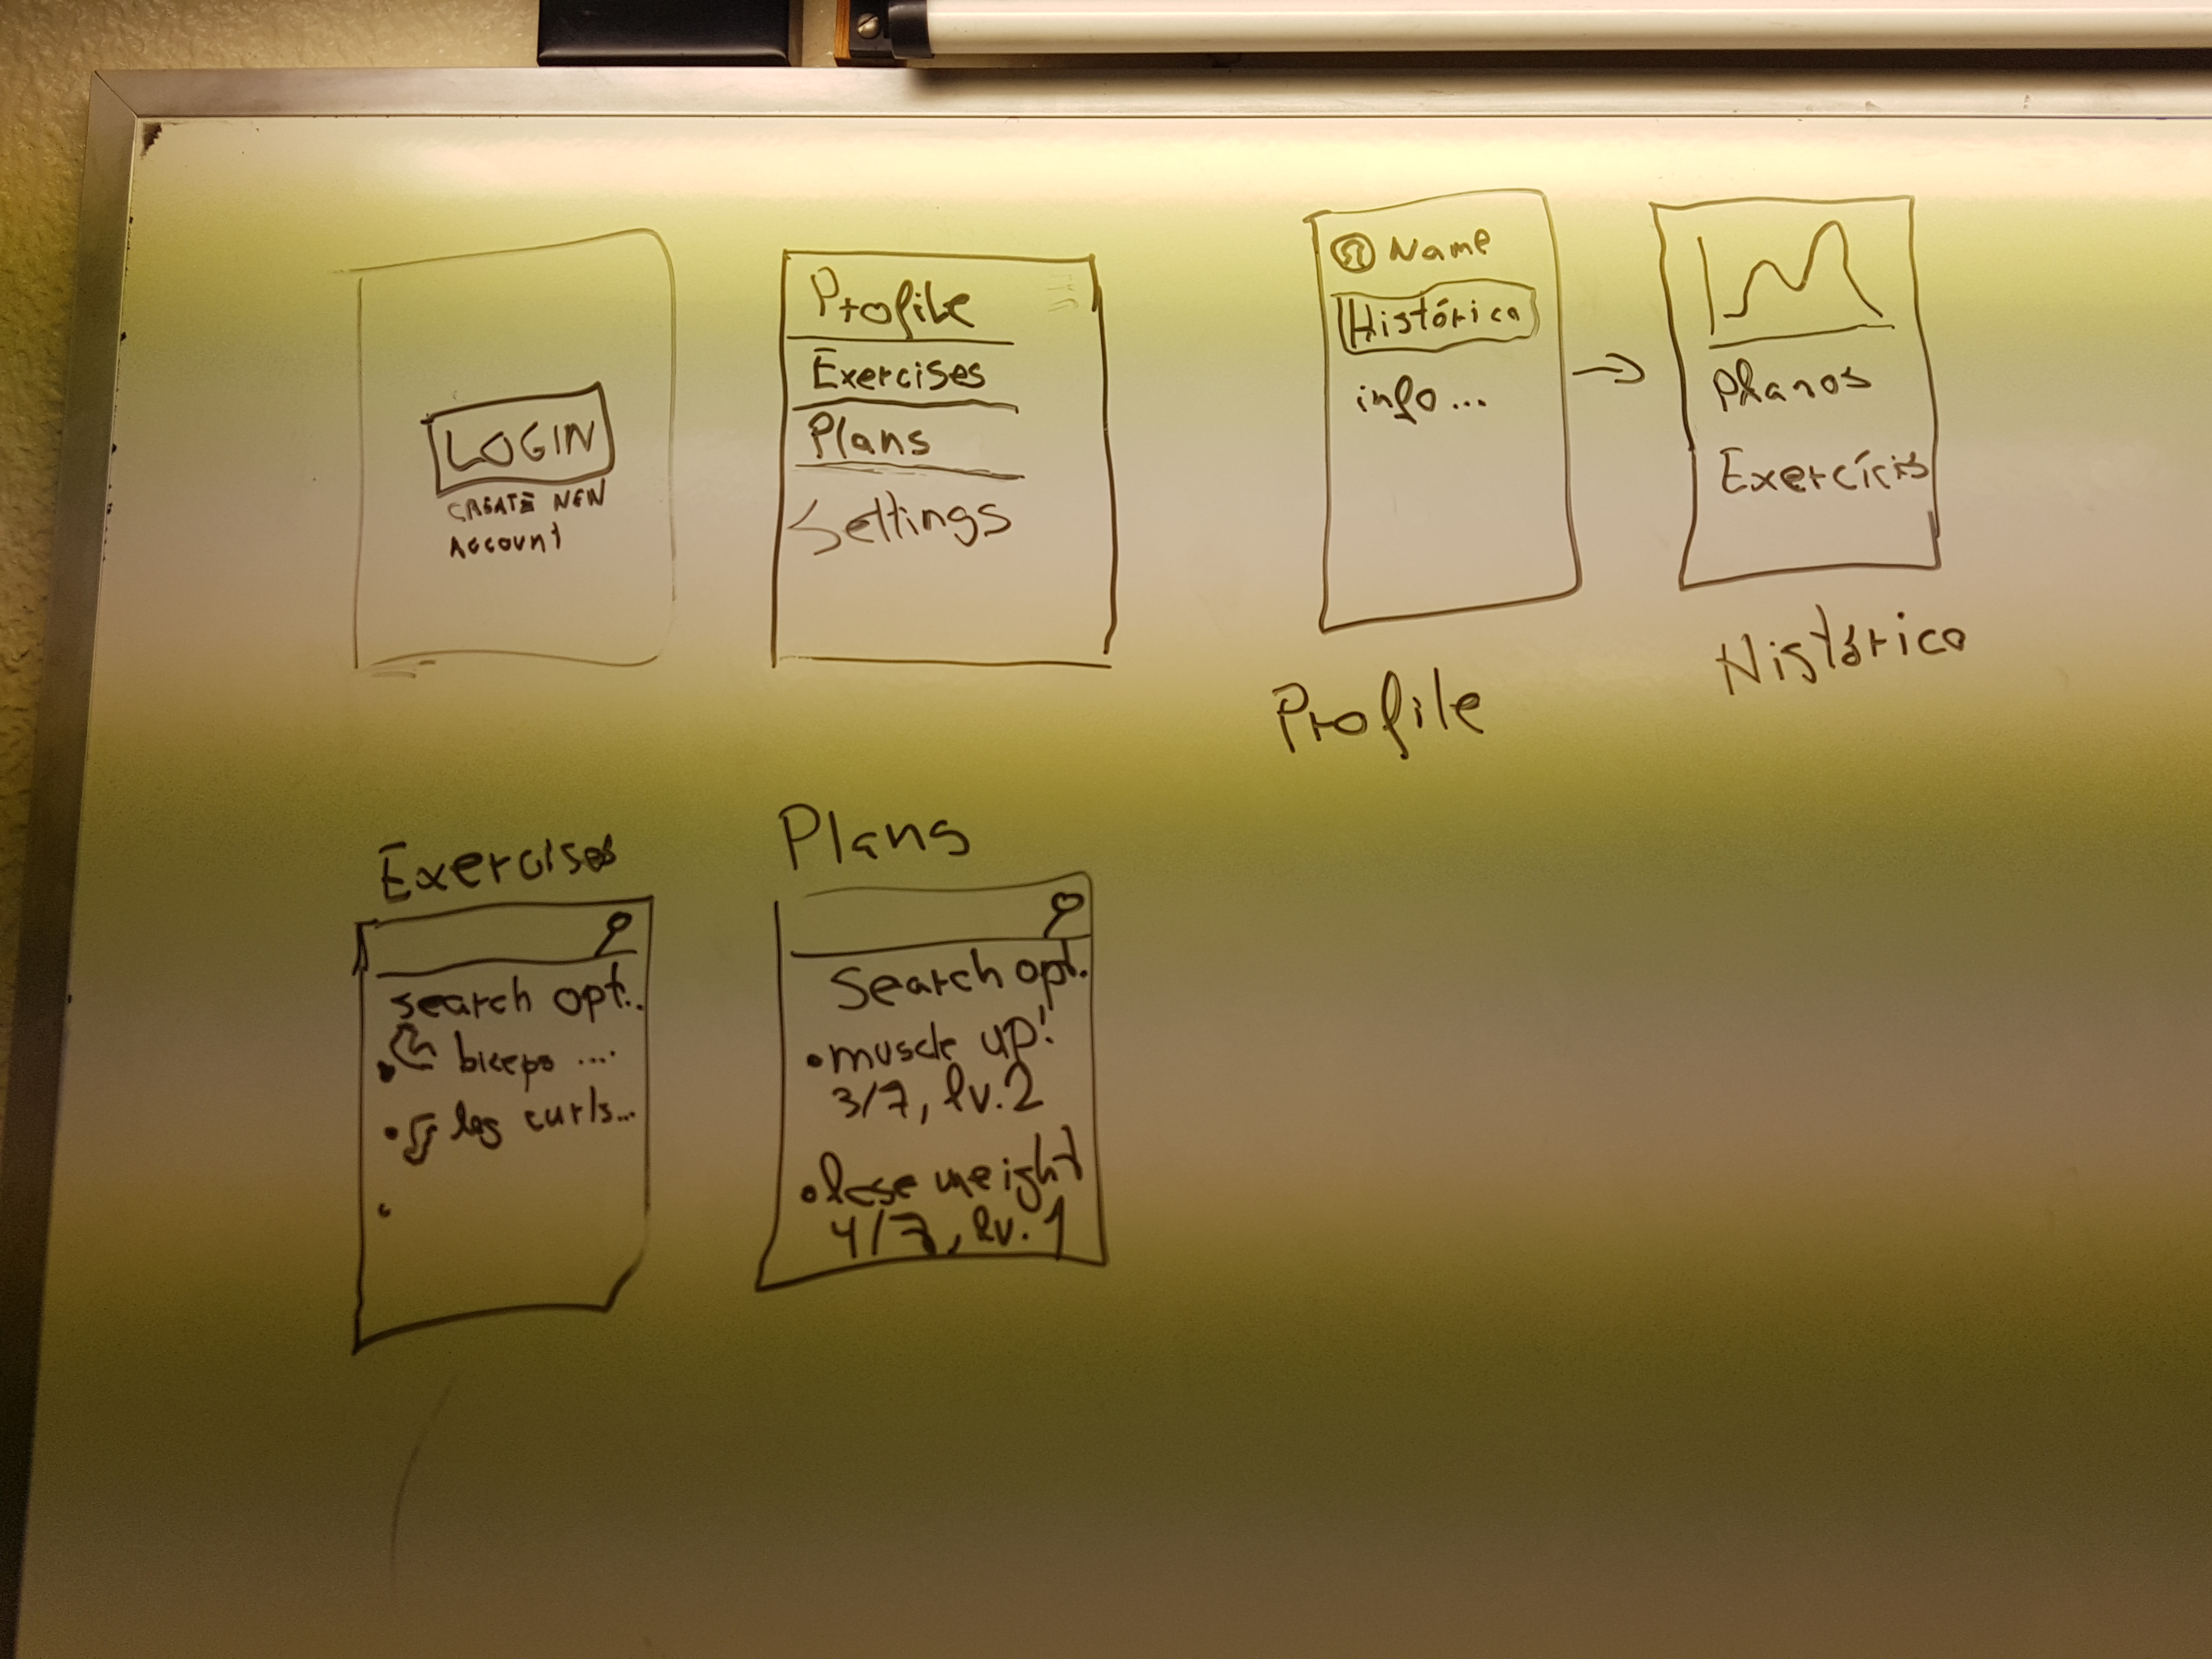 LOGIN
CREATE NEW
ACCOUNT
Profile
Exercises
Plans
Settings
Name
Histórico
info...
Profile
Planos
Exercícios
Histórico
Exercises
search opt..
• biceps ....
• leg curls...
•
Plans
Search opt.
• muscle up!
3/7, lv.2
• lose weight
4/7, lv. 1